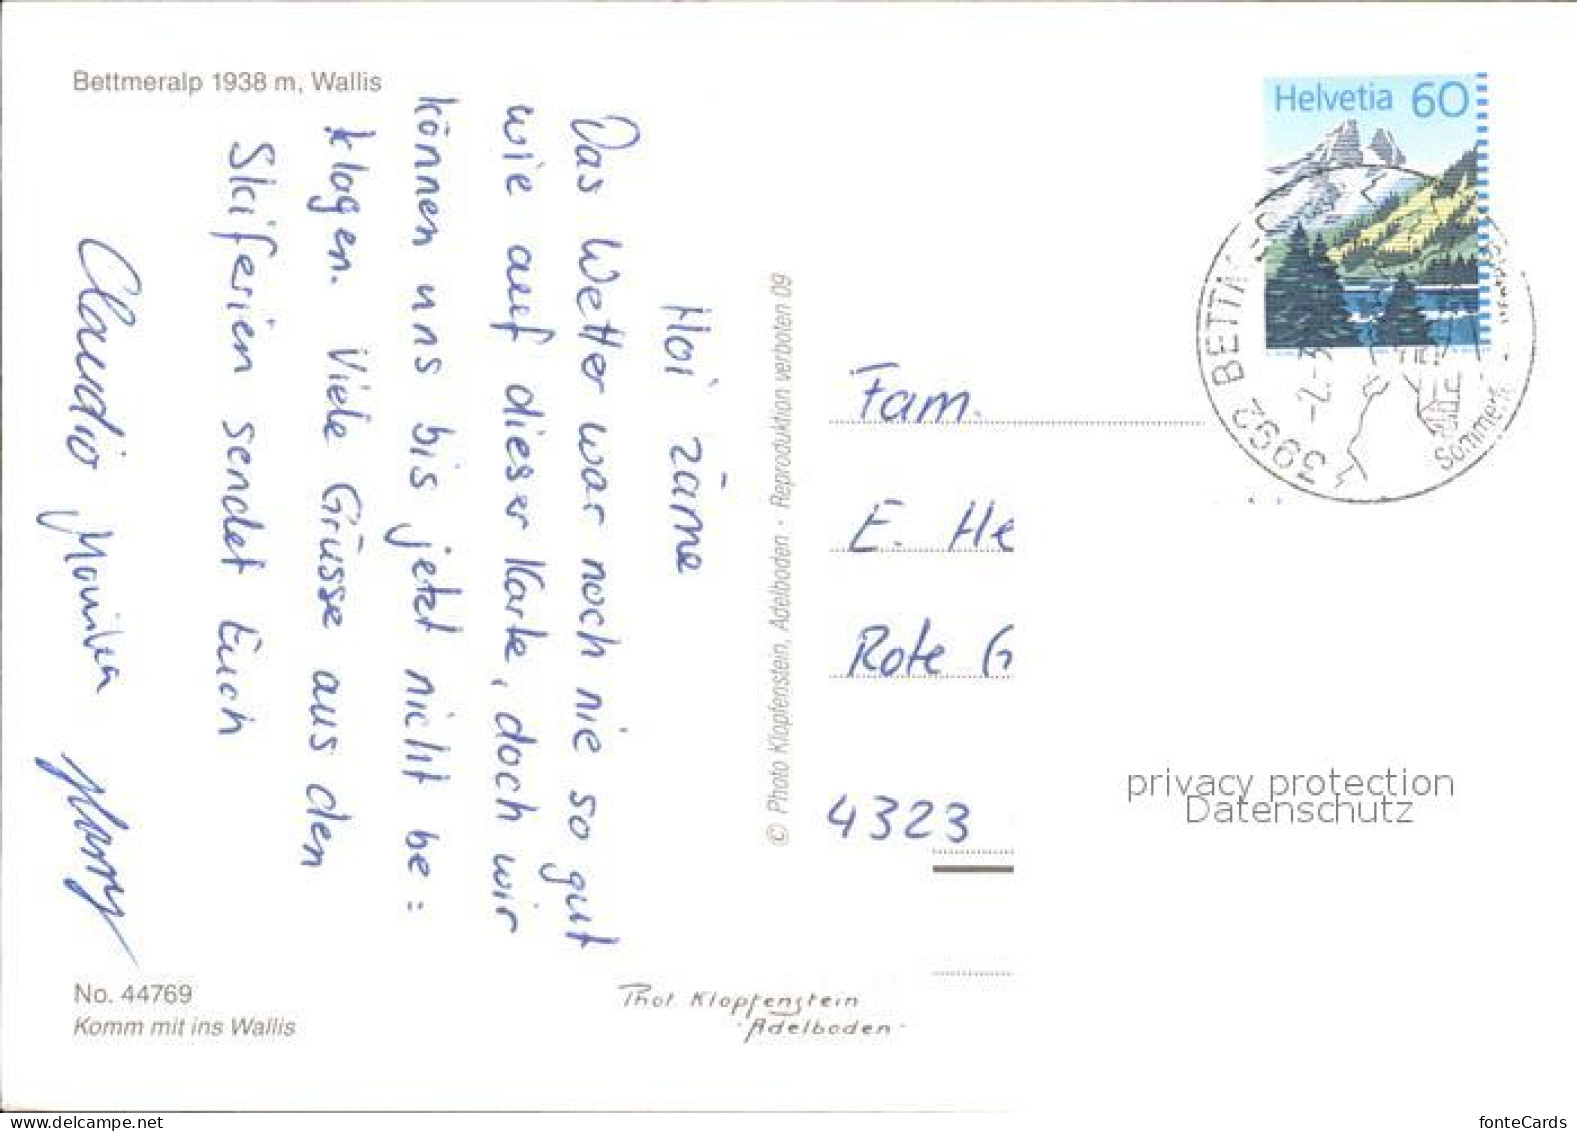 Bettmeralp 1938 m, Wallis
Hoi zäme
Das Wetter war noch nie so gut
wie auf dieser Karte, doch wir
können uns bis jetzt nicht be=
klagen. Viele Grüsse aus den
Skiferien sendet Euch
Claudio Monika Harry
No. 44769
Komm mit ins Wallis
© Photo Klopfenstein, Adelboden · Reproduktion verboten 09
Phot. Klopfenstein
· Adelboden ·
Helvetia 60
3992 BETTM
Fam.
E. He
Rote G
4323
privacy protection
Datenschutz
www.delcampe.net
fonteCards